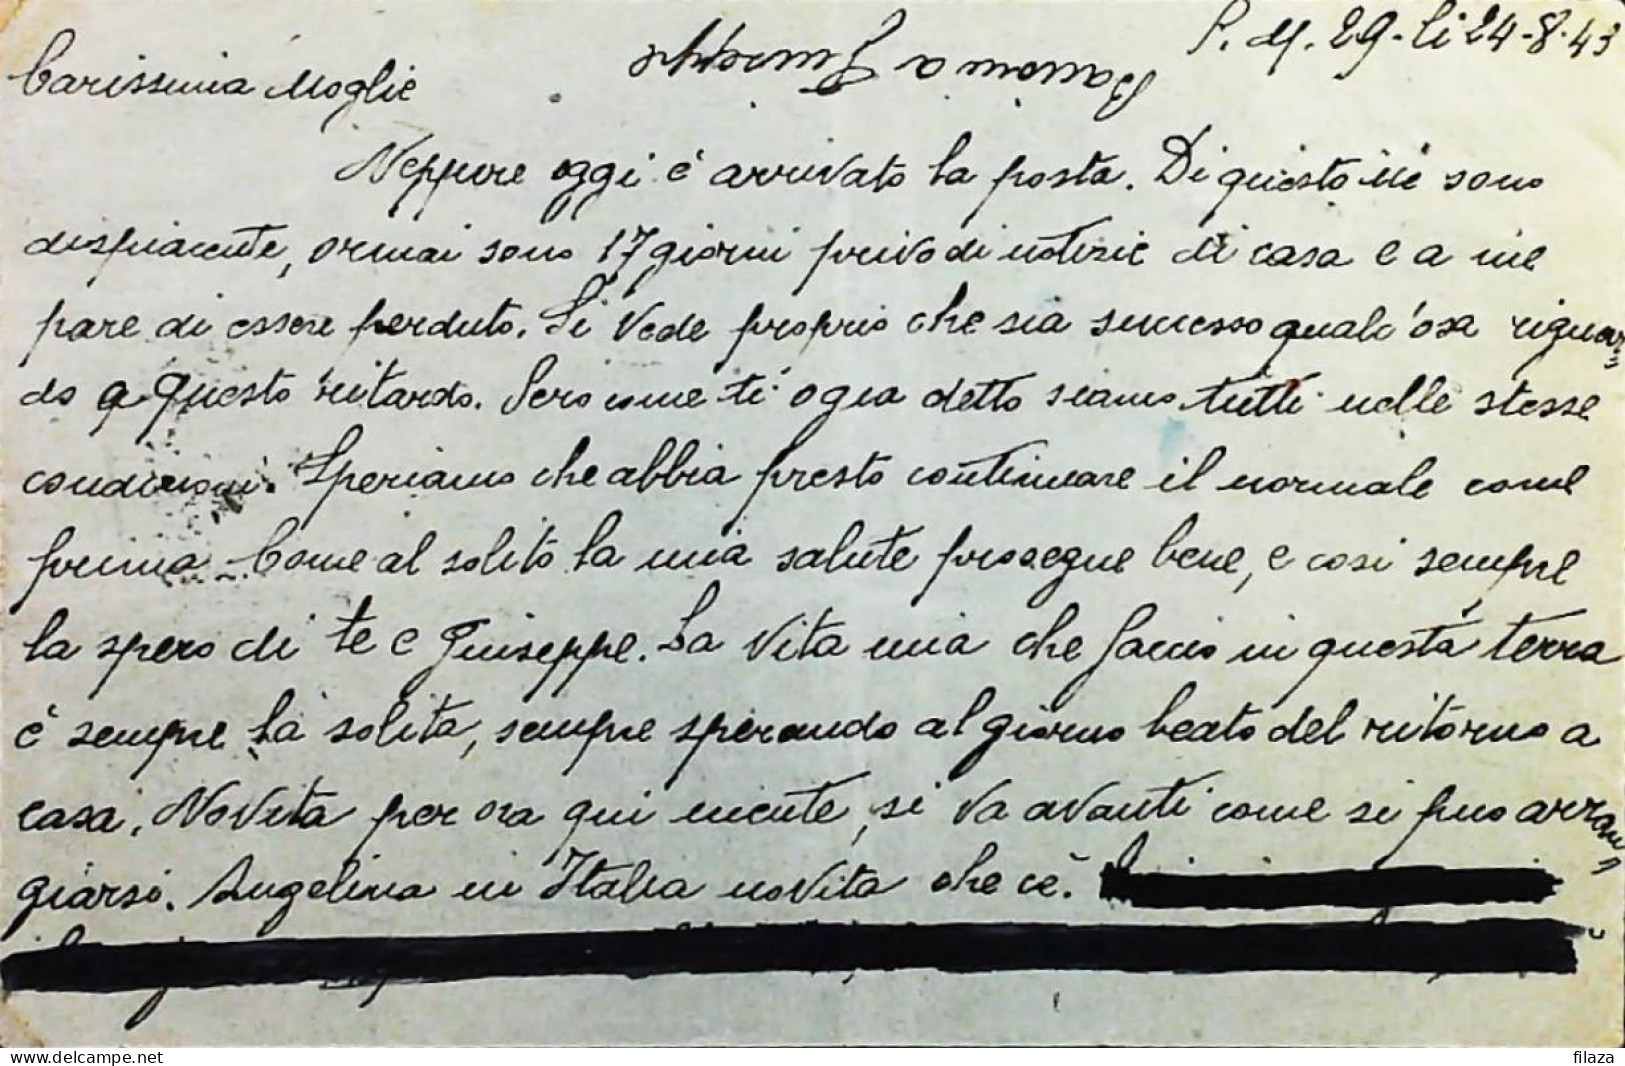 P. M. 29. li 24-8-43
Carissima Moglie
Neppure oggi è arrivato la posta. Di questo mi sono
dispiacente, ormai sono 17 giorni privo di notizie di casa e a me
pare di essere perduto. Si vede proprio che sia successo qualc'osa riguar=
do a questo ritardo. Però come ti o gia detto siamo tutti nelle stesse
condizioni. Speriamo che abbia presto continuare il normale come
prima. Come al solito la mia salute prosegue bene, e cosi sempre
la spero di te e Giuseppe. La vita mia che faccio in questa terra
è sempre la solita, sempre sperando al giorno beato del ritorno a
casa. Novita per ora qui niente, si va avanti come si puo arran=
giarsi. Angelina in Italia novita che cè.
www.delcampe.net
filaza